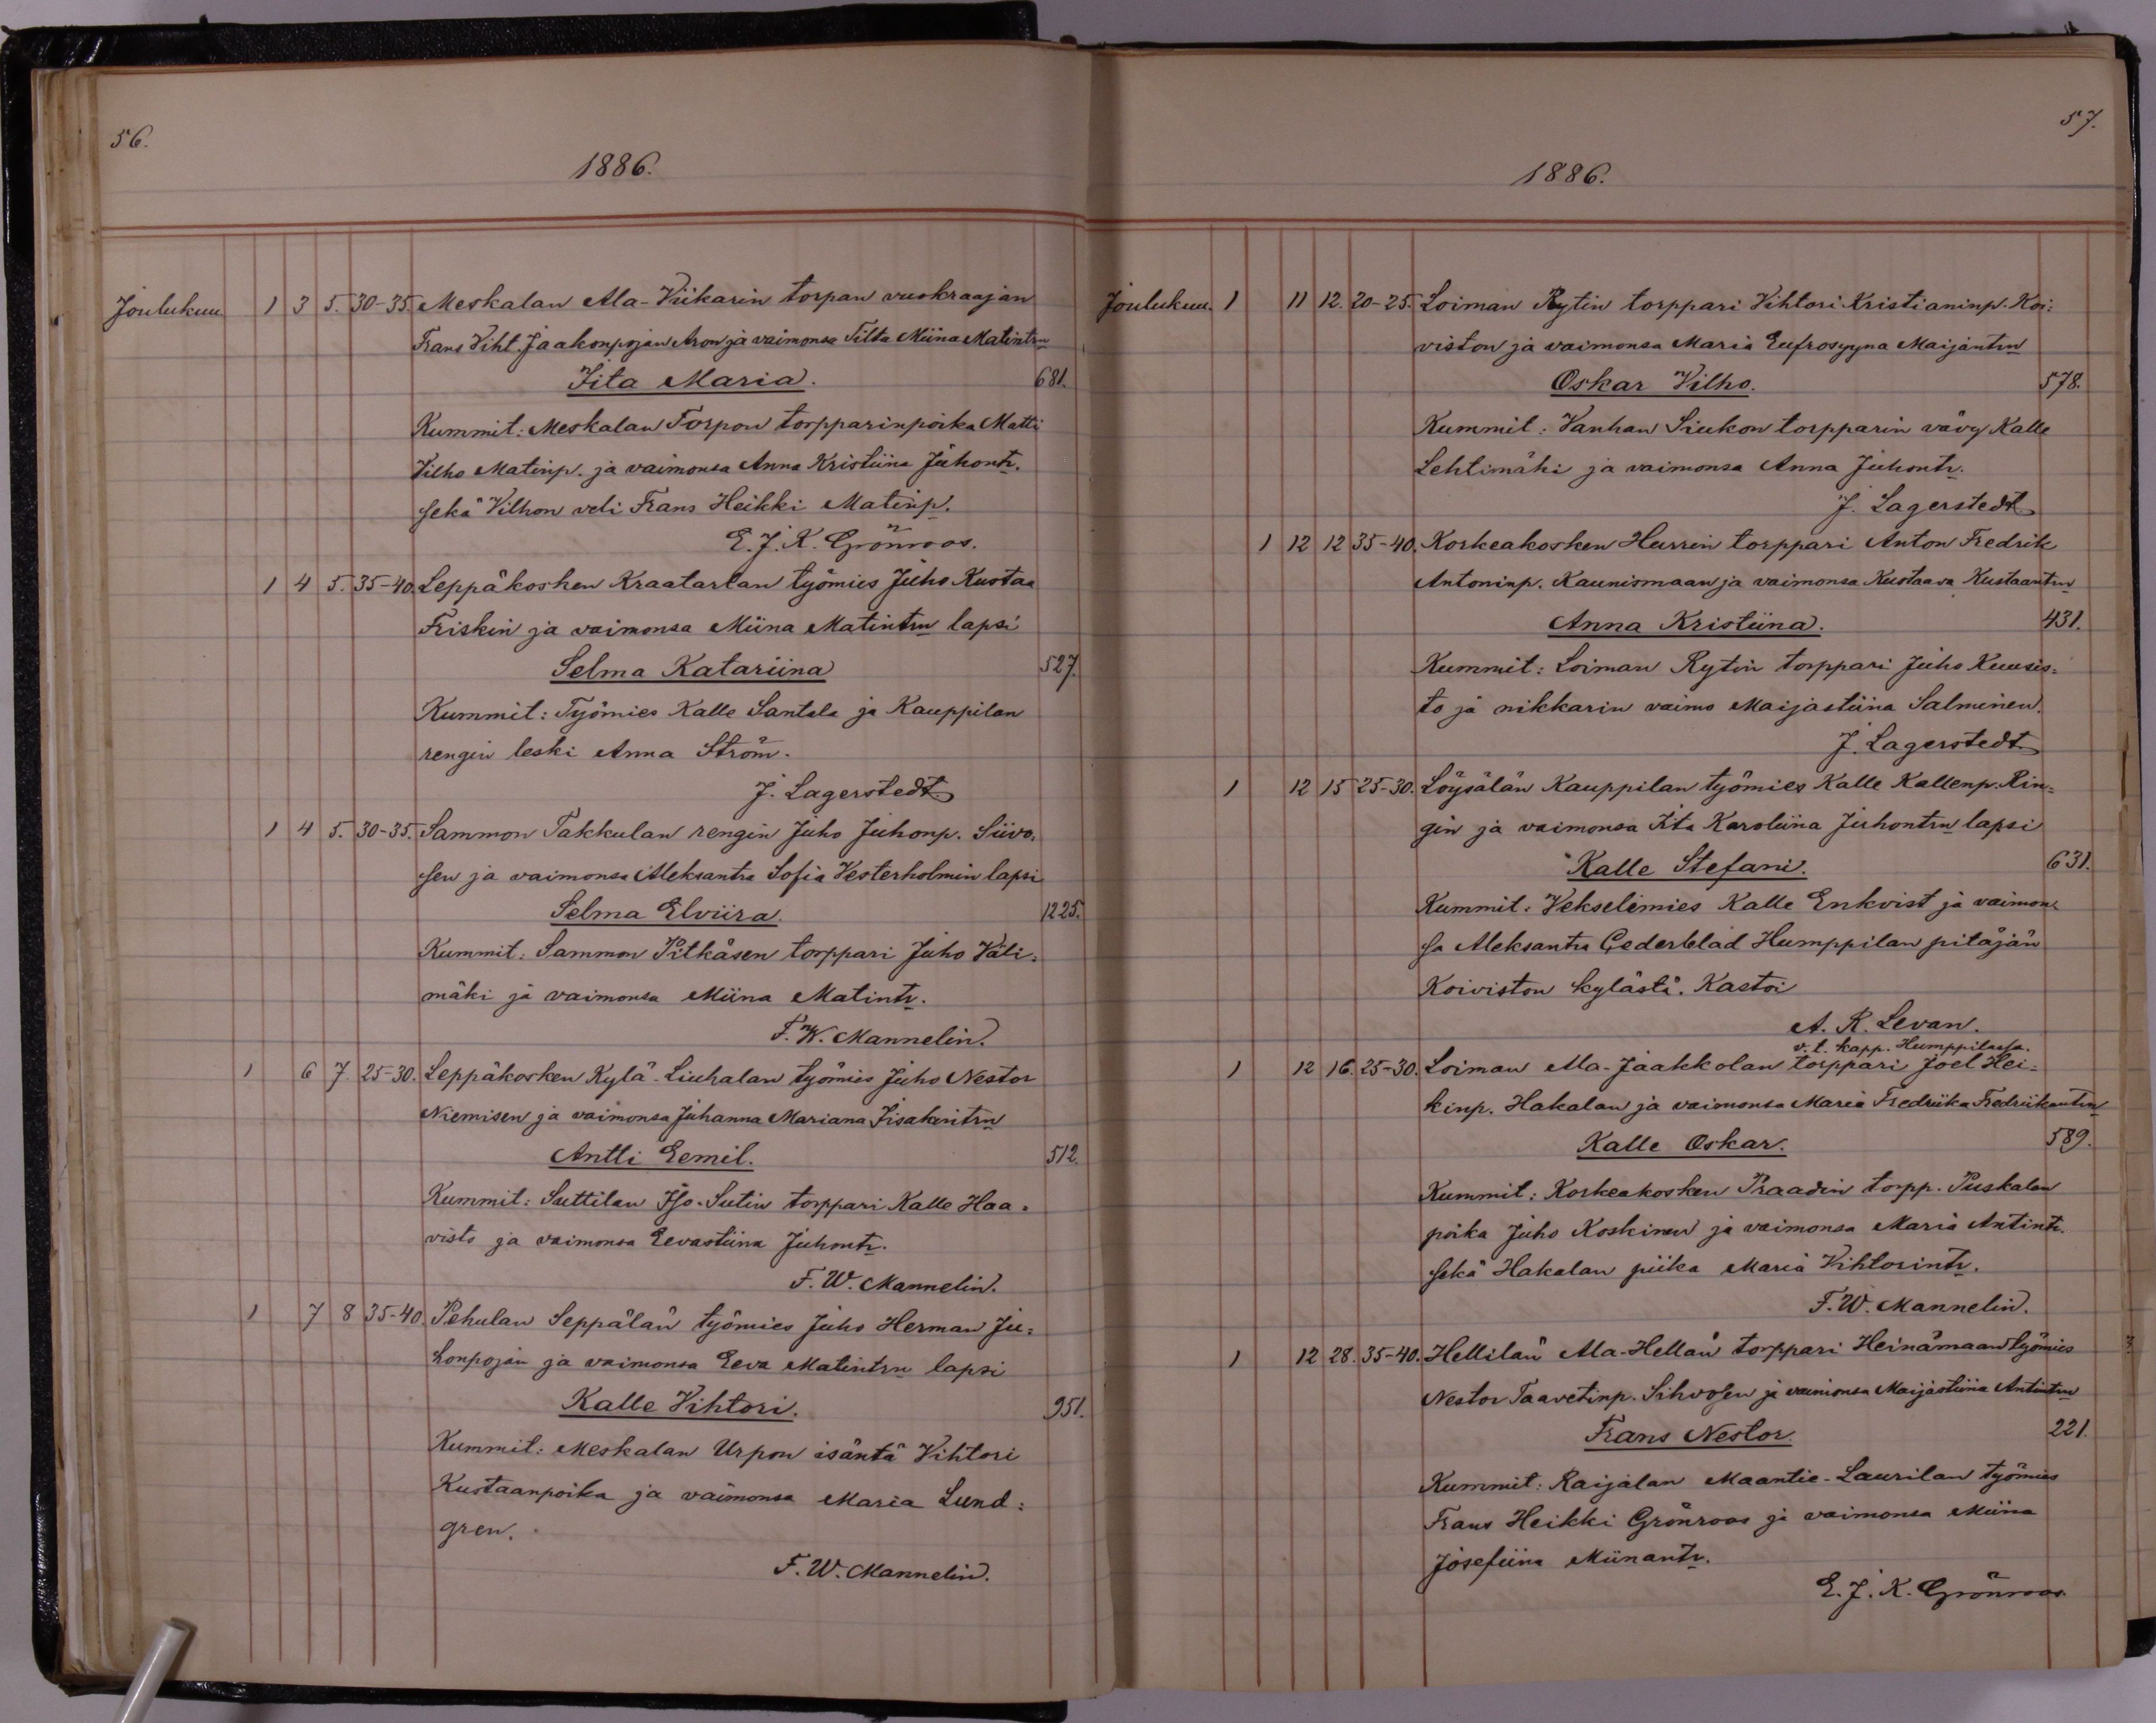 56.
1886.
Joulukuu 1 3 5. 30-35. Meskalan Ala-Viikarin torpan vuokraajan
Frans Viht. Jaakonpojan Aron ja vaimonsa Tilta Miina Matintrn
Iita Maria. 681.
Kummit: Meskalan Torpon torpparinpoika Matti
Vilho Matinp. ja vaimonsa Anna Kristiina Juhontr.
sekä Vilhon veli Frans Heikki Matinp.
E. J. K. Grönroos.
1 4 5. 35-40. Leppäkosken Kraatarlan työmies Juho Kustaa
Friskin ja vaimonsa Miina Matintrn lapsi
Selma Katariina 527.
Kummit: Työmies Kalle Santala ja Kauppilan
rengin leski Anna Ström.
J. Lagerstedt
1 4 5. 30-35. Sammon Takkulan rengin Juho Juhonp. Siivo-
sen ja vaimonsa Aleksantra Sofia Vesterholmin lapsi
Selma Elviira. 1225.
Kummit: Sammon Pitkäsen torppari Juho Väli-
mäki ja vaimonsa Miina Matintr.
F. W. Mannelin.
1 6 7. 25-30. Leppäkosken Kylä-Liuhalan työmies Juho Nestor
Niemisen ja vaimonsa Juhanna Mariana Iisakintrn
Antti Eemil. 512.
Kummit: Suttilan Iso-Sutin torppari Kalle Haa-
visto ja vaimonsa Eevastiina Juhontr.
F. W. Mannelin.
1 7 8 35-40. Pehulan Seppälän työmies Juho Herman Ju-
honpojan ja vaimonsa Eeva Matintrn lapsi
Kalle Vihtori. 951.
Kummit: Meskalan Urpon isäntä Vihtori
Kustaanpoika ja vaimonsa Maria Lund-
gren.
F. W. Mannelin.
57.
1886.
Joulukuu. 1 11 12. 20-25. Loiman Rytin torppari Vihtori Kristianinp. Koi-
viston ja vaimonsa Maria Eufrosyyna Maijantrn
Oskar Vilho. 578.
Kummit: Vanhan Siukon torpparin vävy Kalle
Lehtimäki ja vaimonsa Anna Juhontr.
J. Lagerstedt
1 12 12 35-40. Korkeakosken Hurrin torppari Anton Fredrik
Antoninp. Kaunismaan ja vaimonsa Kustaava Kustaantrn
Anna Kristiina. 431.
Kummit: Loiman Rytin torppari Juho Kuusis-
to ja nikkarin vaimo Maijastiina Salminen.
J. Lagerstedt
1 12 15 25-30. Löysälän Kauppilan työmies Kalle Kallenp. Rin-
gin ja vaimonsa Iita Karoliina Juhontrn lapsi
Kalle Stefani. 631.
Kummit: Vekselimies Kalle Enkvist ja vaimon-
sa Aleksantra Cederblad Humppilan pitäjän
Koiviston kylästä. Kastoi
A. R. Levan.
v. t. kapp. Humppilassa.
1 12 16. 25-30. Loiman Ala-Jaakkolan torppari Joel Hei-
kinp. Hakalan ja vaimonsa Maria Fredriika Fredriikantrn
Kalle Oskar. 589.
Kummit: Korkeakosken Praadin torpp. Puskalan
poika Juho Koskinen ja vaimonsa Maria Antintr.
sekä Hakalan piika Maria Vihtorintr.
F. W. Mannelin.
1 12 28. 35-40. Hellilän Ala-Hellän torppari Heinämaan työmies
Nestor Taavetinp. Sihvosen ja vaimonsa Maijastiina Antintrn
Frans Nestor. 221.
Kummit: Raijalan Maantie-Laurilan työmies
Frans Heikki Grönroos ja vaimonsa Miina
Josefiina Miinantr.
E. J. K. Grönroos.